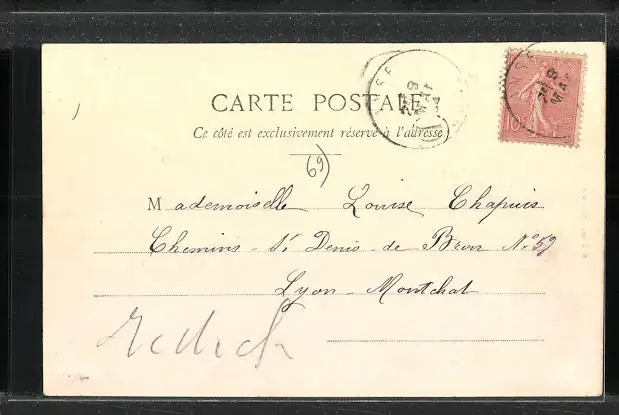 CARTE POSTALE
Ce côté est exclusivement réservé à l'adresse
69
Mademoiselle Louise Chapuis
Chemins - St Denis - de Bron No 59
Lyon - Montchat